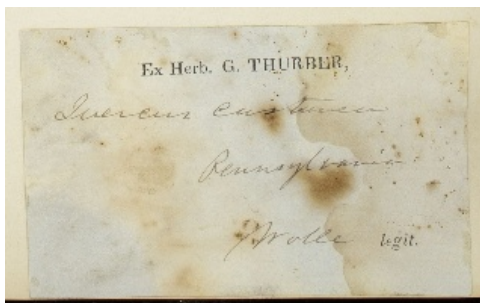 Ex Herb. G. THURBER,
Quercus castanea
Pennsylvania
Wolle legit.